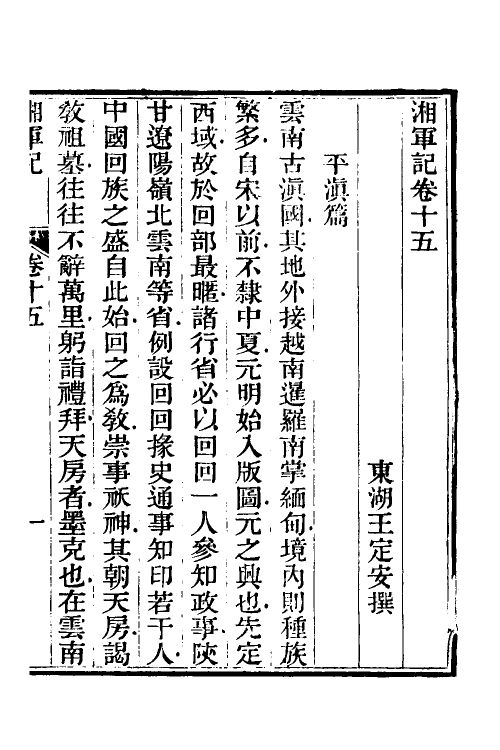 湘軍記卷十五
東湖王定安撰
平滇篇
雲南古滇國其地外接越南暹羅南掌緬甸境內則種族
繁多自宋以前不隸中夏元明始入版圖元之興也先定
西域故於回部最暱諸行省必以回回一人參知政事陝
甘遼陽嶺北雲南等省例設回回掾史通事知印若干人
中國回族之盛自此始回之爲敎崇事祅神其朝天房謁
敎祖墓往往不辭萬里躬詣禮拜天房者墨克也在雲南
湘軍記 卷十五 一